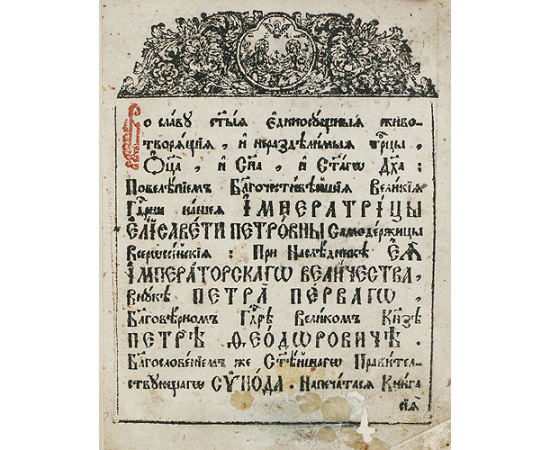 Во славу ст҃ыѧ єдиносꙋщныѧ живо-
творѧщїѧ, и нераздѣлимыѧ трⷪ҇цы,
Ѻц҃а, и Сн҃а, и Ст҃агѡ Дх҃а:
Повелѣнїемъ Бл҃гочестивѣйшїѧ Великїѧ
Гдⷭ҇рни нашеѧ ІМПЕРАТРІЦЫ
ЕЛІСАВЕТИ ПЕТРОВНЫ Самодержицы
Всерѡссїйскїѧ: При Наслѣдникѣ ЕѦ
ІМПЕРАТОРСКАГѠ ВЕЛИЧЕСТВА,
Внꙋкѣ ПЕТРА ПЕРВАГѠ,
Бл҃говѣрномъ Гдⷭ҇рѣ Великомъ Кн҃зѣ
ПЕТРѢ ѲЕОДѠРОВИЧѢ.
Бл҃гословенїемъ же Ст҃ѣйшагѡ Правител-
ствꙋющагѡ СѴНОДА. Напечатасѧ Книга
сїѧ